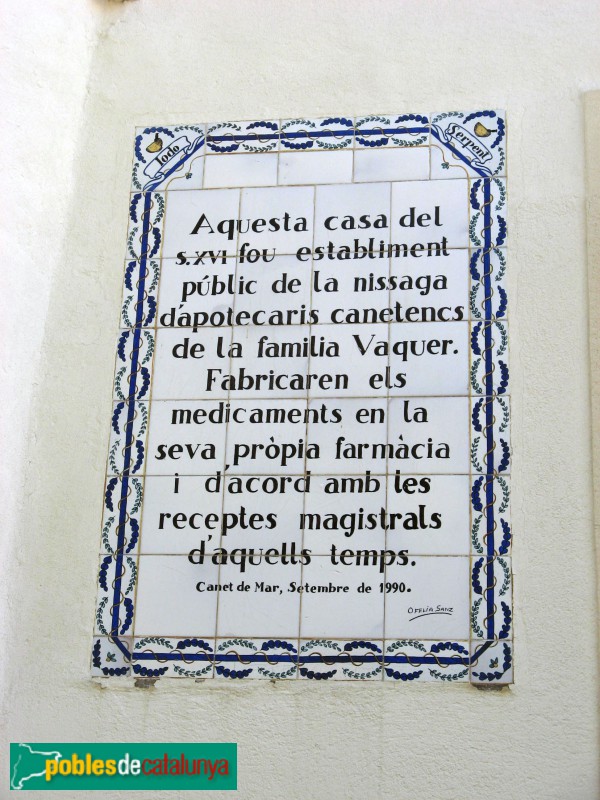 Iodo
Serpent
Aquesta casa del
s.XVI fou establiment
públic de la nissaga
d'apotecaris canetencs
de la familia Vaquer.
Fabricaren els
medicaments en la
seva pròpia farmàcia
i d'acord amb les
receptes magistrals
d'aquells temps.
Canet de Mar, Setembre de 1990.
OFELIA SANZ
poblesdecatalunya